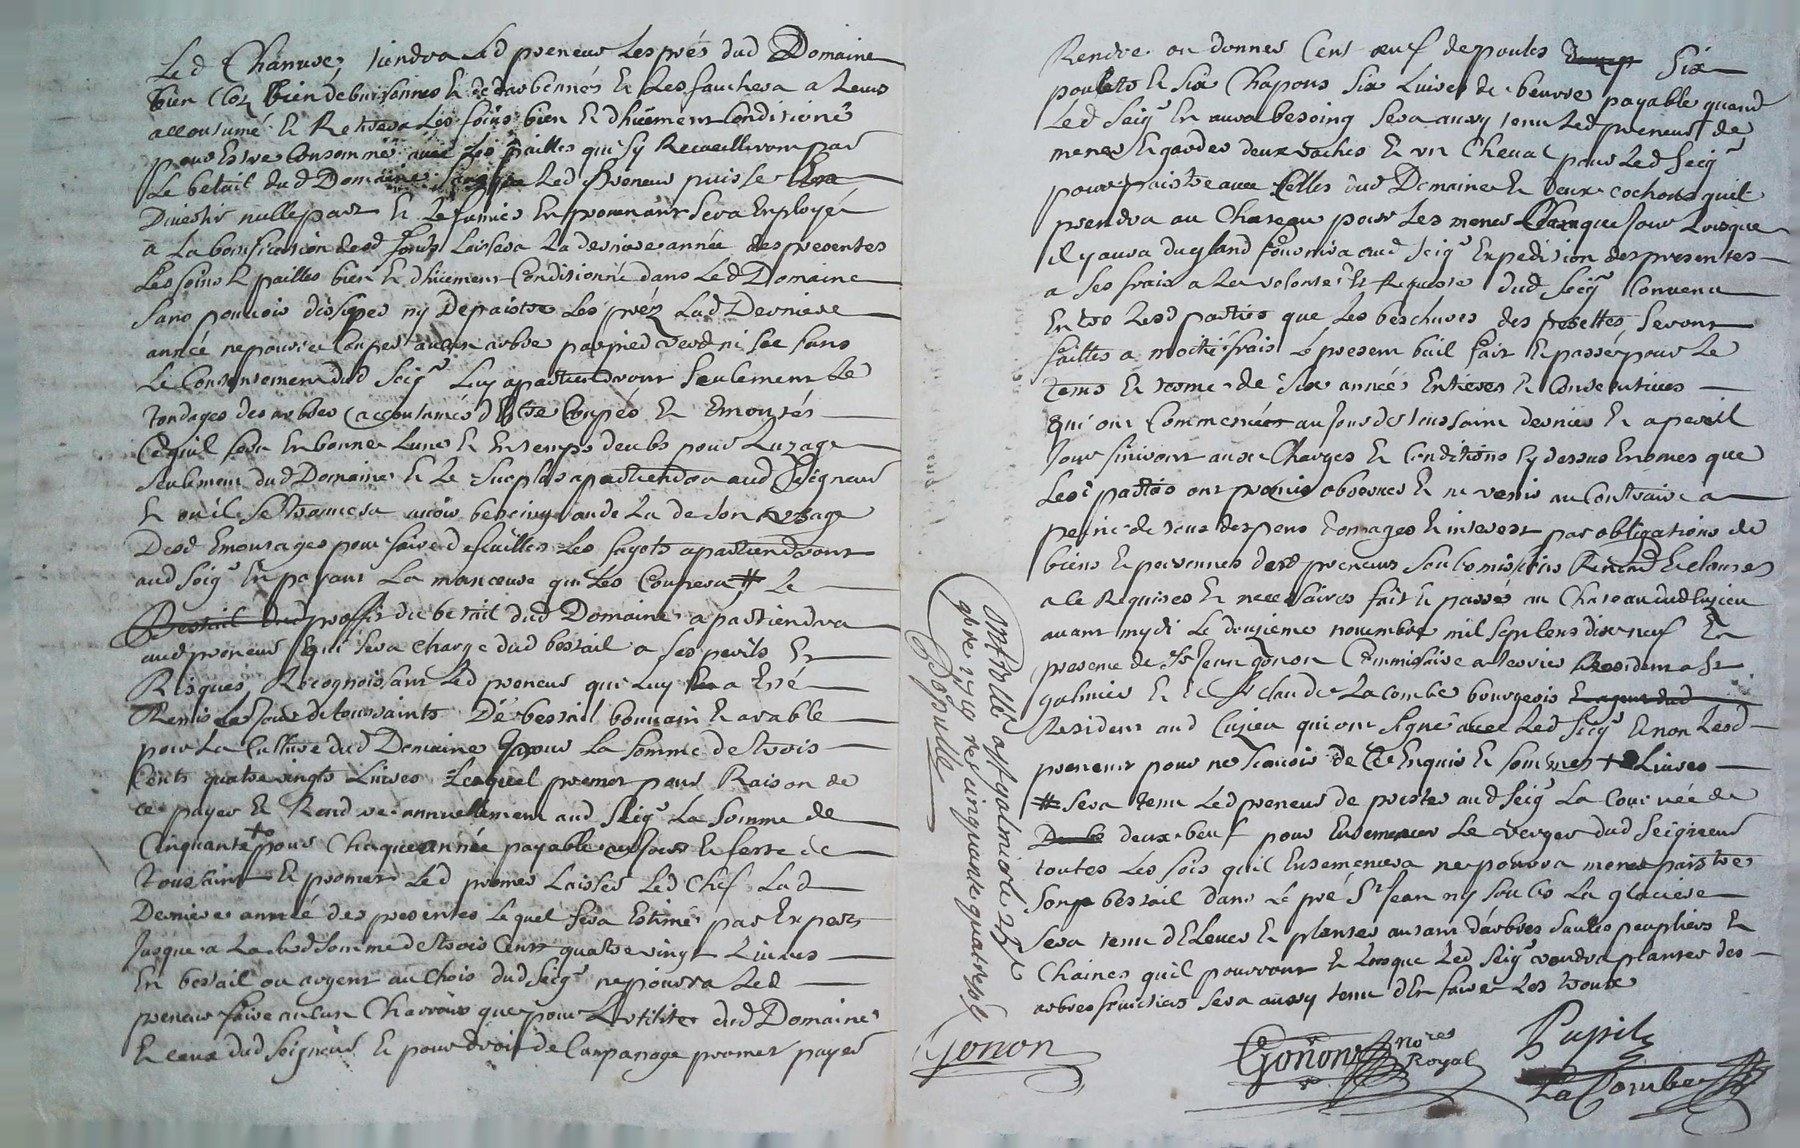 Led Chanure, tiendra led preneur les prés dud Domaine
bien clos bien debuissonnes et et les fauchera a leurs
accoutumé et Retirera les foins bien et dhuement Conditionné
pour Estre Consommé avec les pailles qui sy Recueilliront par
Le betail dud Domaine sans que led Preneur puisse
Divertir nulle part et le fumier En provenant sera Employé
a La bonification desd fonds Laissera La derniere année des presentes
Les foins et pailles bien et dhuement Conditionné dans Led Domaine
sans pouvoir dissiper ny Depaistre Les préz Lad Derniere
année ne pourra Couper aucun arbre par pied verd ni sec sans
Le Consentement dud Seigr Luy apartiendront seulement Le
tondages des arbres accoutumés dEstre Coupés et Emoutés
Ce quil fera En bonne Lune et En temps deub pour Luzage
seulement dud Domaine et Le Surplus apartiendra aud Seigneur
Et ou il se trouvera avoir besoing audela de son uzage
Desd Emoutages pour faire defeuiller Les fagots apartiendront
aud Seigr En payant La maneuvre qui Les Coupera # Le
Bestail dud proffit du betail dud Domaine apartiendra
aud preneur qui sera charge dud bestail a ses perils Et
Risques, Recognoissant Led preneur que Luy a Esté
Remis Le Jour de toussaints Dé bestail bouvain et arable
pour La Culture dud Domaine pour La somme de trois
Cents quatre vingts Livres Lequel promet pour Raison de
ce payer et Rendre annuellement aud Seigr La Somme de
Cinquante + pour Chaque année payable au Jour et feste de
Toussaint et promet Led preneur Laisser Led Chef Lad
Derniere année des presentes Lequel sera Estimé par Experts
Jusque a La susd somme de trois Cents quatre vingt Livres
En bestail ou argent au Choix dud Seigr ne pourra Led
preneur faire aucun Charrois que pour Lutilite dud Domaine
et Ceux dud Seigneur et pour droit de Carpanage promet payer
Rendre ou donner Cent œuf de poules Six
poulets et six Chapons six Livres de beurre payable quand
Led Seigr En aura besoing sera aussy tenu Led preneur de
mener et garder deux vaches et un Cheval pour Led Seigr
pour paistre avec Celles dud Domaine et deux cochons quil
prendra au Chateau pour Les mener Chaque Jour Lorsque
il y aura du gland fournira aud Seigr Expedition des presentes
a ses frais a La volonté et Requeste dud Seigr Convenu
Entre Lesd parties que Les des seront
faittes a moitié frais Le present bail fait et passé pour Le
tems et terme de six années Entieres et Consecutives
qui ont Commencées au Jour de toussaint dernier et a pareil
Jour finiront aux Charges et Conditions Cy dessus Enomes que
Lesd parties ont promis observer et ne venir au Contraire a
peine de tous despens domages et interest par obligations de
biens et personnes desd preneurs soubmissions Renond et clauses
a ce Requises et necessaires fait et passé au Chateau dud Cuzieu
avant mydi Le douzieme novembre mil sept cens dix neuf En
presence de Sr Jean gonon Commissaire a terrier Resident a St
galmier et de Sr claude La Combe bourgeois
Resident aud Cuzieu qui ont signé avec Led Seigr Et non Lesd
preneur pour ne scavoir de Ce Enquis et sommes + Livres
# sera tenu Led preneur de prester aud Seigr La Courvée de
deux beuf pour Ensemencer Le verger dud Seigneur
toutes Les fois quil Ensemencera ne pourra mener paistre
Son bestail dans Le pré St Jean ny soubs La glaciere
sera tenu dElever et planter autant darbres saules peupliers et
Chaines quil pourront et Lorsque Led Seigr voudra planter des
arbres fruictiers sera aussy tenu dEn faire Les troux
Controllé a St galmier le 25
9bre 1719 R cinquante quatre s
Gonon
Gonon nore Royal
Pupil
La Combe